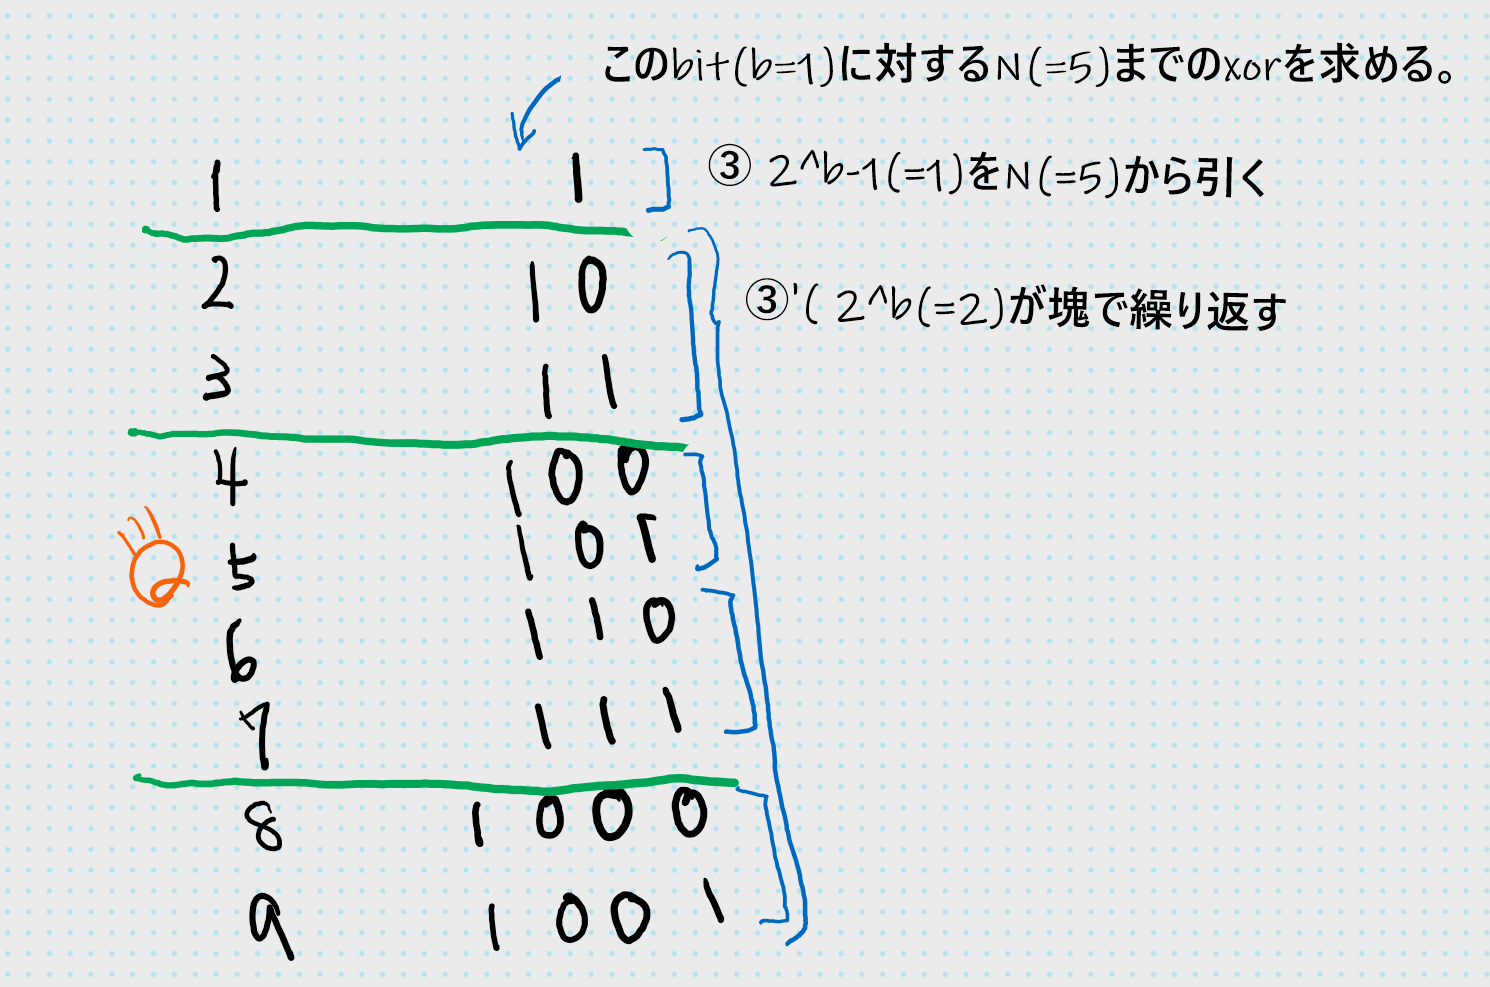 このbit(b=1)に対するN(=5)までのxorを求める。
1 1
③ 2^b-1(=1)をN(=5)から引く
2 10
③'( 2^b(=2)が塊で繰り返す
3 11
4 100
5 101
6 110
7 111
8 1000
9 1001